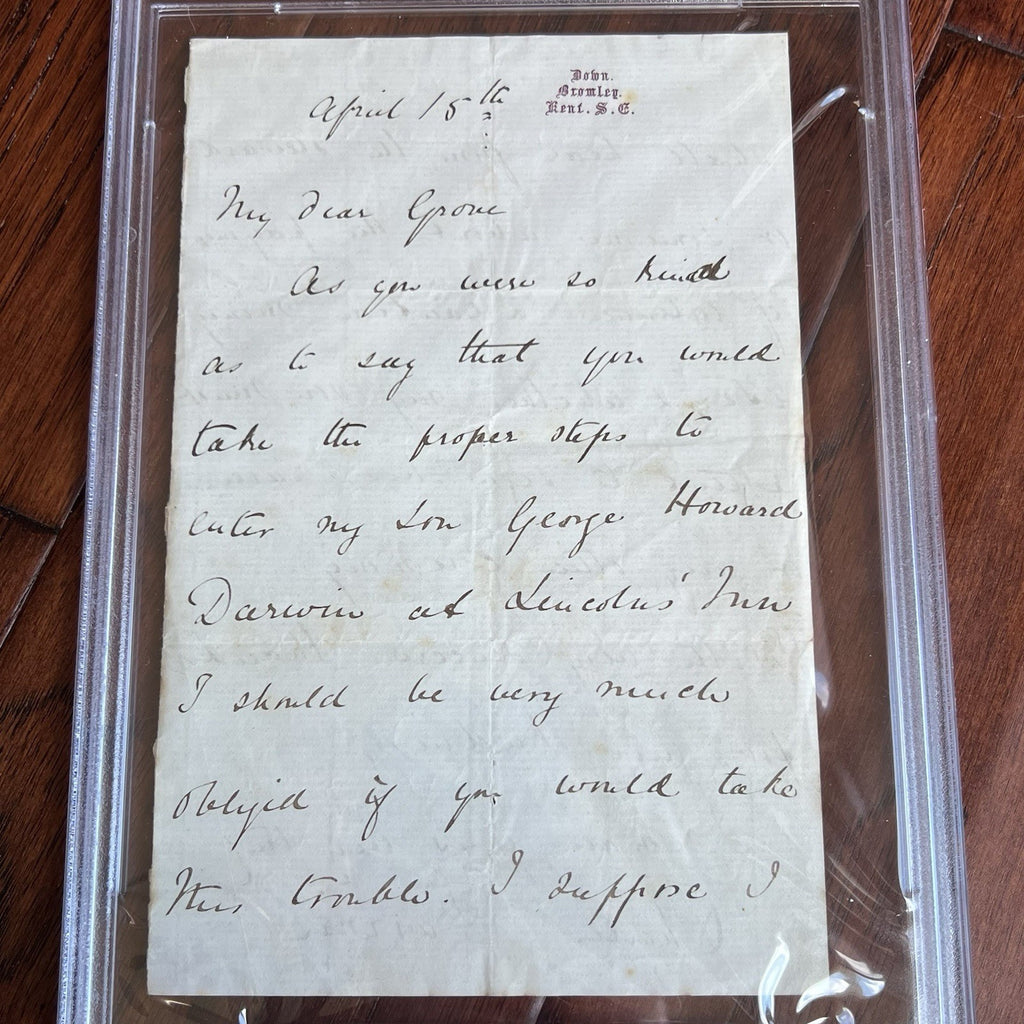 Down.
Bromley.
Kent. S.E.
April 15th
My dear Grove
As you were so kind
as to say that you would
take the proper steps to
enter my son George Howard
Darwin at Lincolns' Inn
I should be very much
obliged if you would take
this trouble. I suppose I